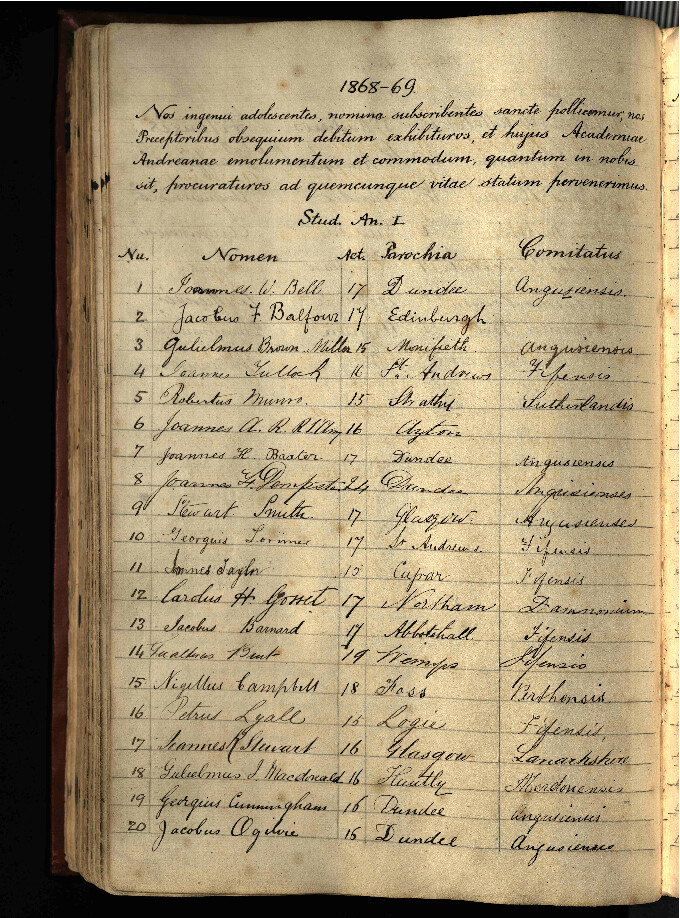 1868-69.
Nos ingenui adolescentes, nomina subscribentes sancte pollicemur, nos
Preceptoribus obsequium debitum exhibituros, et hujus Academiae
Andreanae emolumentum et commodum, quantum in nobis
sit, procuraturos ad quemcunque vitae statum pervenerimus.
Stud. An. I
Nu. Nomen Aet. Parochia Comitatus
1 Joannes W. Bell 17 Dundee Angusiensis.
2 Jacobus F Balfour 17 Edinburgh
3 Gulielmus Brown Miller 15 Monifieth Angusiensis
4 Joannes Tulloch 16 St. Andrews Fifensis
5 Robertus Munro. 15 Strathy Sutherlandis
6 Joannes A. R. 16 Ayton
7 Joannes H. Baxter 17 Dundee Angusiensis
8 Joannes Dempster 24 Dundee Angusienses
9 Stewart Smith 17 Glasgow. Angusienses
10 Georgius Lorimer 17 St Andrews Fifensis
11 James Taylor 15 Cupar Fifensis
12 Carolus H. Gosset 17 Northam Damnonium
13 Jacobus Barnard 17 Abbotshall Fifensis
14 19 Wemyss Fifensis
15 Nigellus Campbell 18 Foss Perthensis
16 Petrus Lyall 15 Logie Fifensis.
17 Joannes Stewart 16 Glasgow Lanarkshire
18 Gulielmus J. Macdonald 16 Huntly
19 Georgius Cunningham 16 Dundee Angusiensis
20 Jacobus Ogilvie 15 Dundee Angusienses